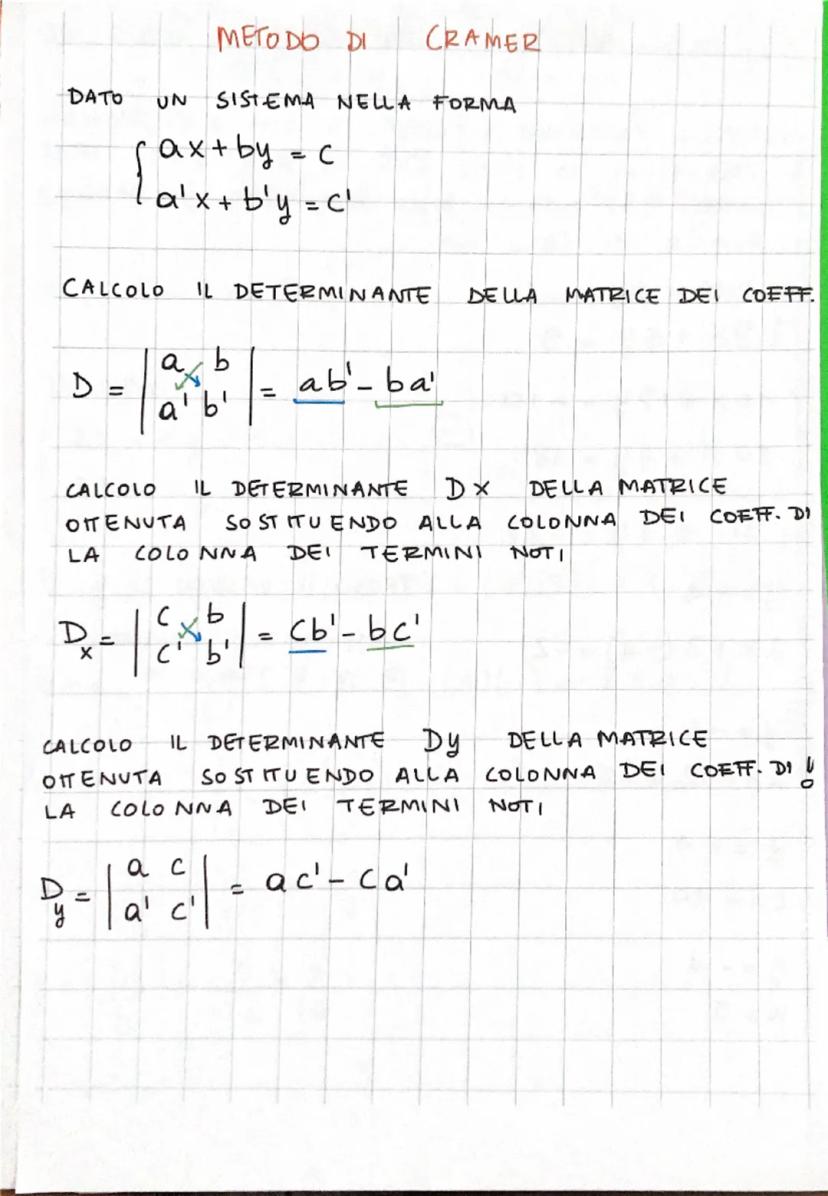 METODO DI CRAMER
DATO UN SISTEMA NELLA FORMA
{ ax + by = c
a'x + b'y = c'
CALCOLO IL DETERMINANTE DELLA MATRICE DEI COEFF.
D = | a b | = ab' - ba'
| a' b' |
CALCOLO IL DETERMINANTE DX DELLA MATRICE
OTTENUTA SOSTITUENDO ALLA COLONNA DEI COEFF. DI
LA COLONNA DEI TERMINI NOTI
Dx = | c b | = cb' - bc'
| c' b' |
CALCOLO IL DETERMINANTE Dy DELLA MATRICE
OTTENUTA SOSTITUENDO ALLA COLONNA DEI COEFF. DI y
LA COLONNA DEI TERMINI NOTI
Dy = | a c | = ac' - ca'
| a' c' |